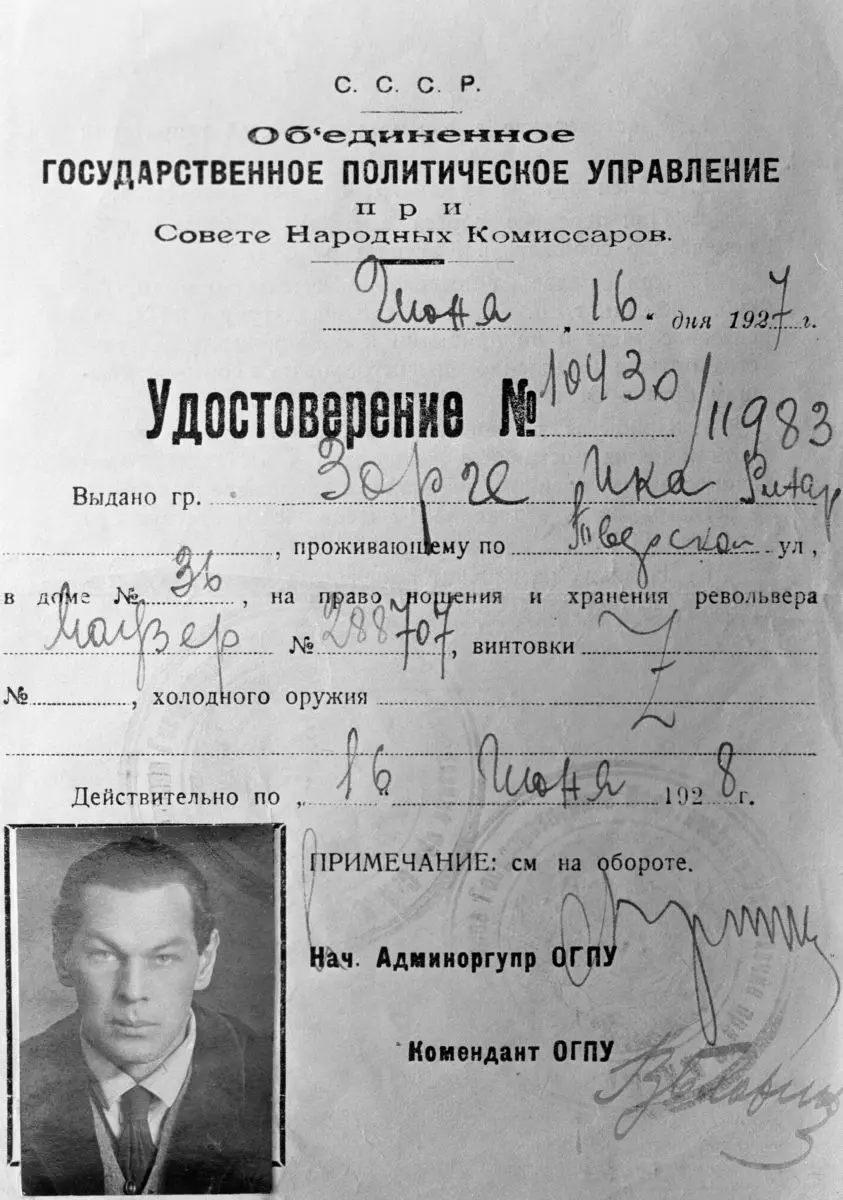 С. С. С. Р.
Об‘единенное
ГОСУДАРСТВЕННОЕ ПОЛИТИЧЕСКОЕ УПРАВЛЕНИЕ
при
Совете Народных Комиссаров.
Июня „16“ дня 1927 г.
Удостоверение № 10430/11983
Выдано гр. Зорге Ика Рихар
, проживающему по Тверской ул,
в доме № 36, на право ношения и хранения револьвера
Маузер № 288707, винтовки
№ , холодного оружия
Действительно по „16“ Июня 1928 г.
ПРИМЕЧАНИЕ: см на обороте.
Нач. Админоргупр ОГПУ
Комендант ОГПУ